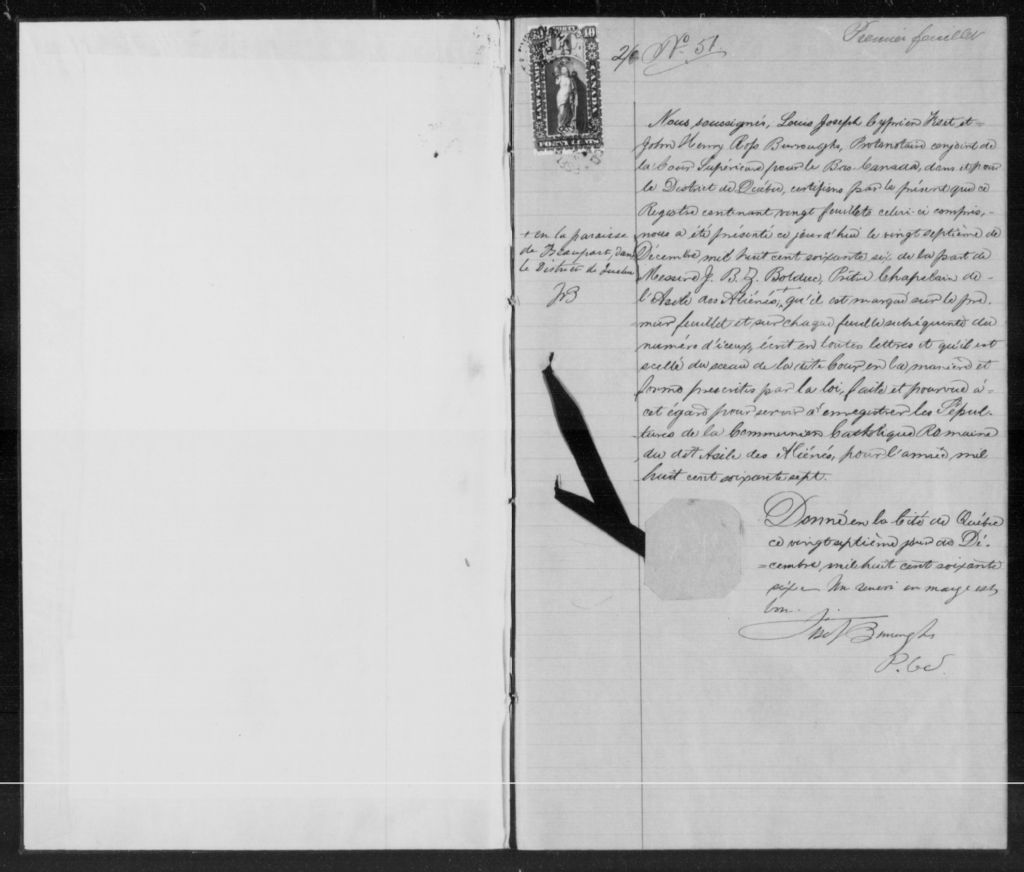 Premier feuillet
2/6 No. 51
Nous, soussignés, Louis Joseph Cyprien Fiset et
John Henry Ross Burroughs, Protonotaire conjoint de
la Cour Supérieure pour le Bas-Canada, dans et pour
le District de Québec, certifions par la présente que ce
Registre contenant vingt feuillets celui-ci compris,
nous a été présenté ce jourd'hui le vingt septième de
Décembre mil huit cent soixante six de la part de
Messire J. B. Z. Bolduc, Prêtre Chapelain de
l'Asile des Aliénés,+ qu'il est marqué sur le pre-
mier feuillet et sur chaque feuille subséquente du
numéro d'iceux, écrit en toutes lettres et qu'il est
scellé du sceau de la dite Cour en la manière et
forme prescrites par la loi, faite et pourvue à
cet égard pour servir à enregistrer les Sépul-
tures de la Communion Catholique Romaine
du dit Asile des Aliénés, pour l'année mil
huit cent soixante sept.
+ en la paroisse
de Beauport, dans
le District de Québec
JB
Donné en la Cité de Québec
ce vingt septième jour de Dé-
=cembre, mil huit cent soixante
six — Un renvoi en marge est
bon.
Burroughs
P. C. S.